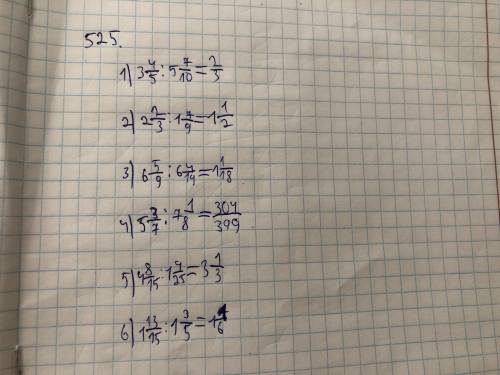 525.
1) 3 4/5 : 5 7/10 = 2/3
2) 2 2/3 : 1 7/9 = 1 1/2
3) 6 5/9 : 6 4/14 = 1 1/18
4) 5 3/7 : 7 1/8 = 304/399
5) 4 8/15 : 1 4/25 = 3 1/3
6) 1 13/15 : 1 3/5 = 1 1/6